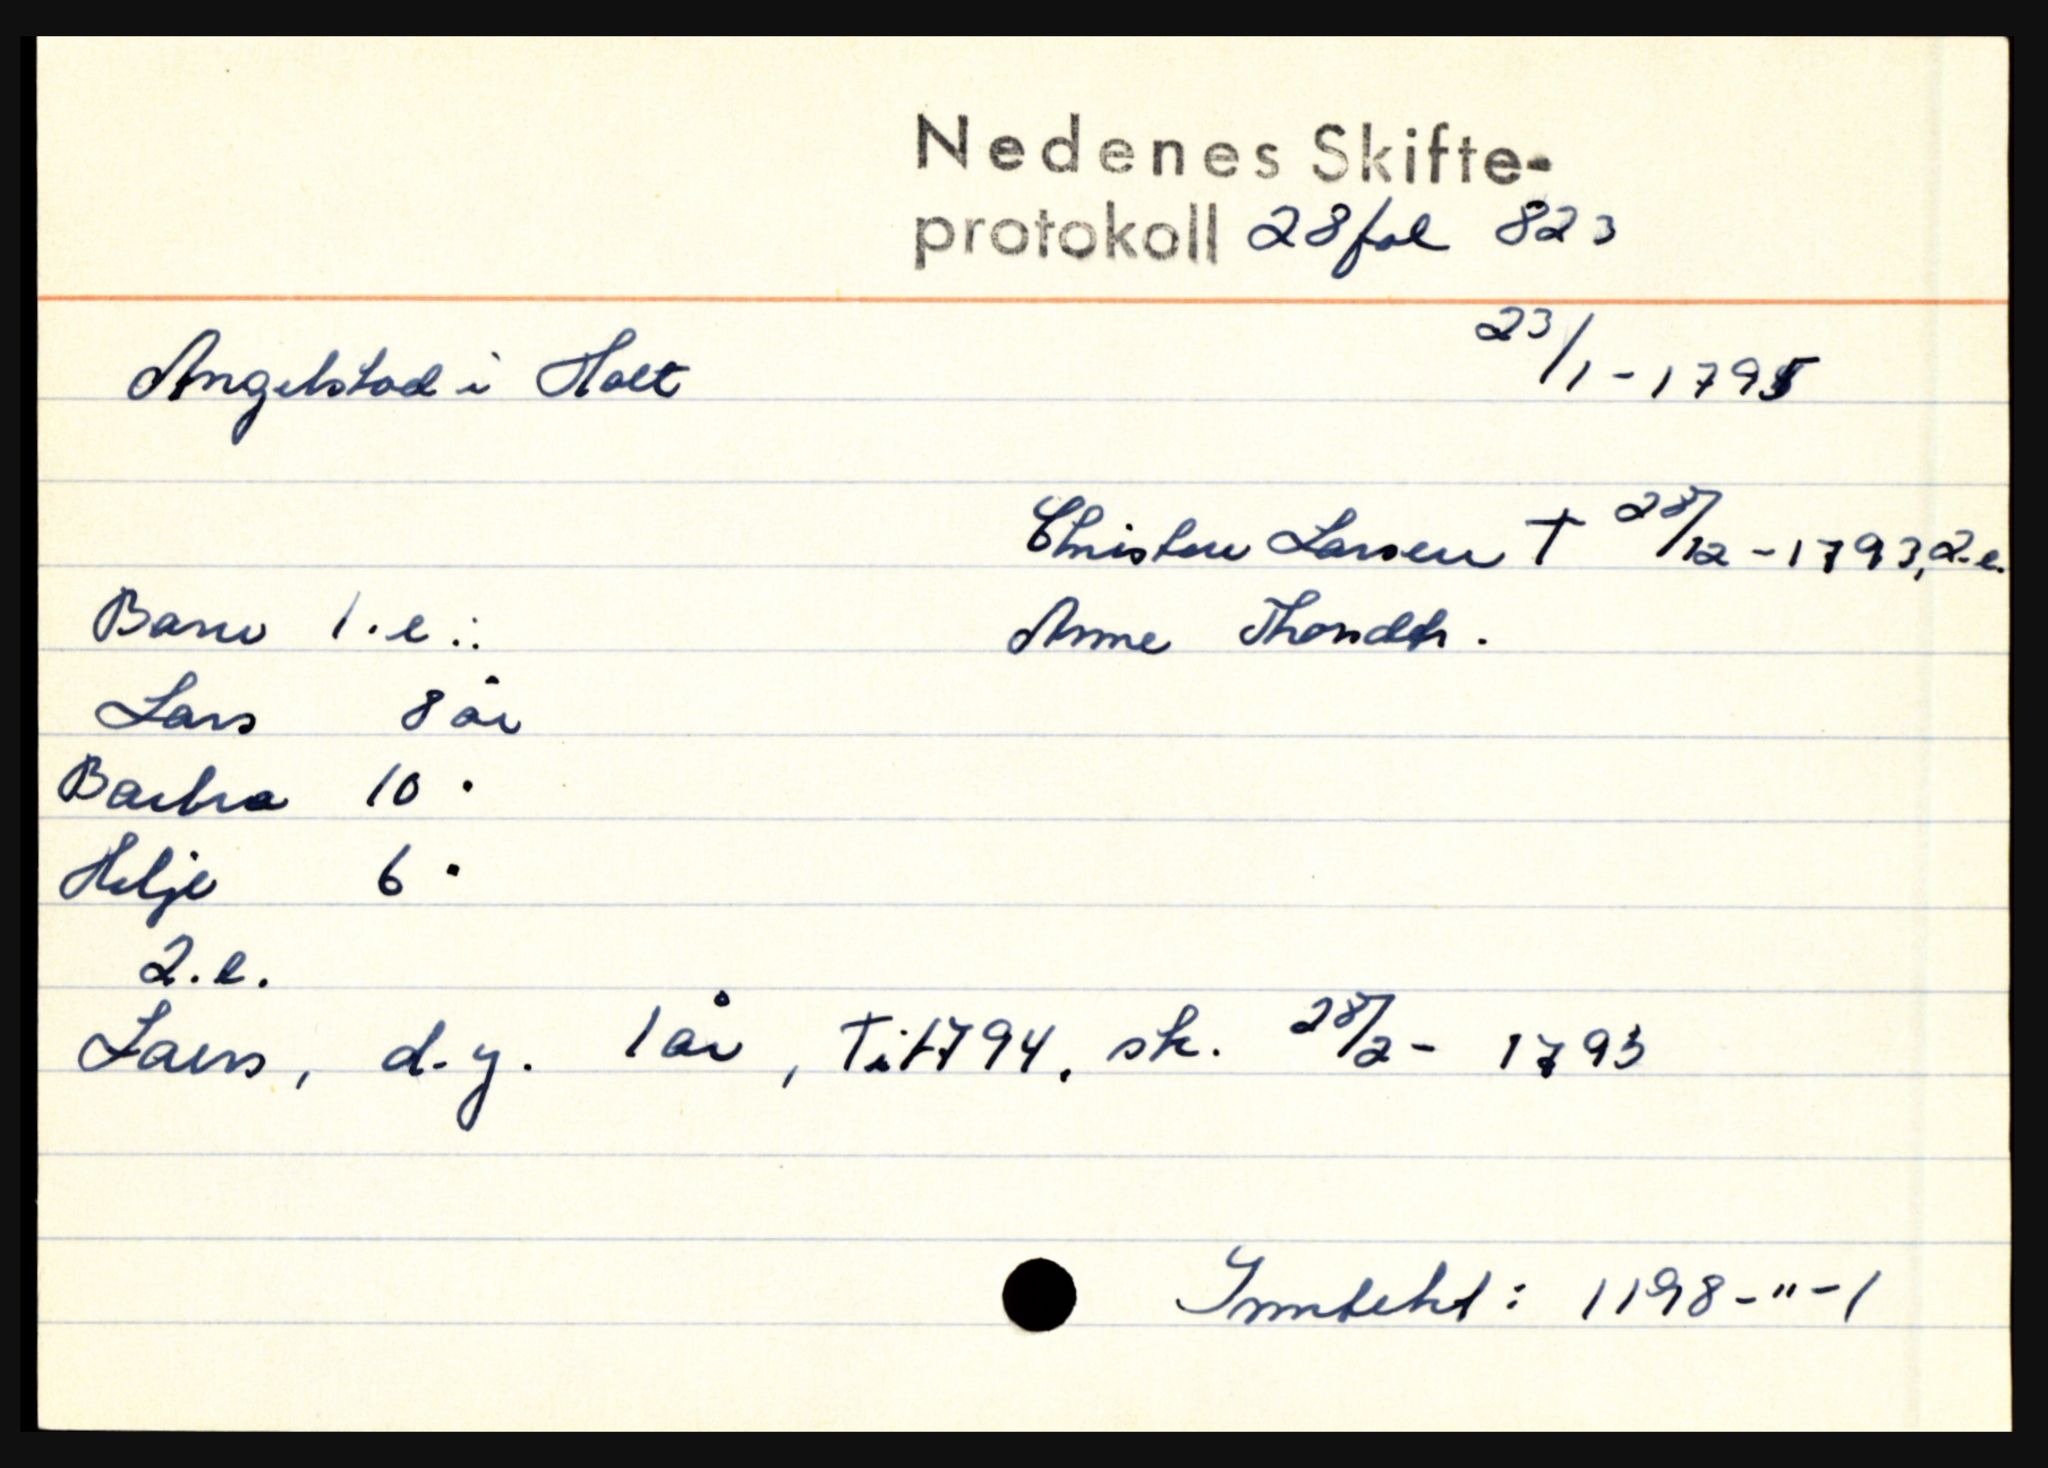 Nedenes Skifte-
protokoll 28 fol 823
Angelstad i Holt 23/1 - 1795
Christen Larsen † 28/12 - 1793, 2. e.
Barn 1. e.: Anne Thorsdtr.
Lars 8 år
Barbra 10 "
Helje 6 "
2. e.
Lars, d. y. 1 år, sk. 28/2 - 1793
Inntekt: 1198 - " - 1